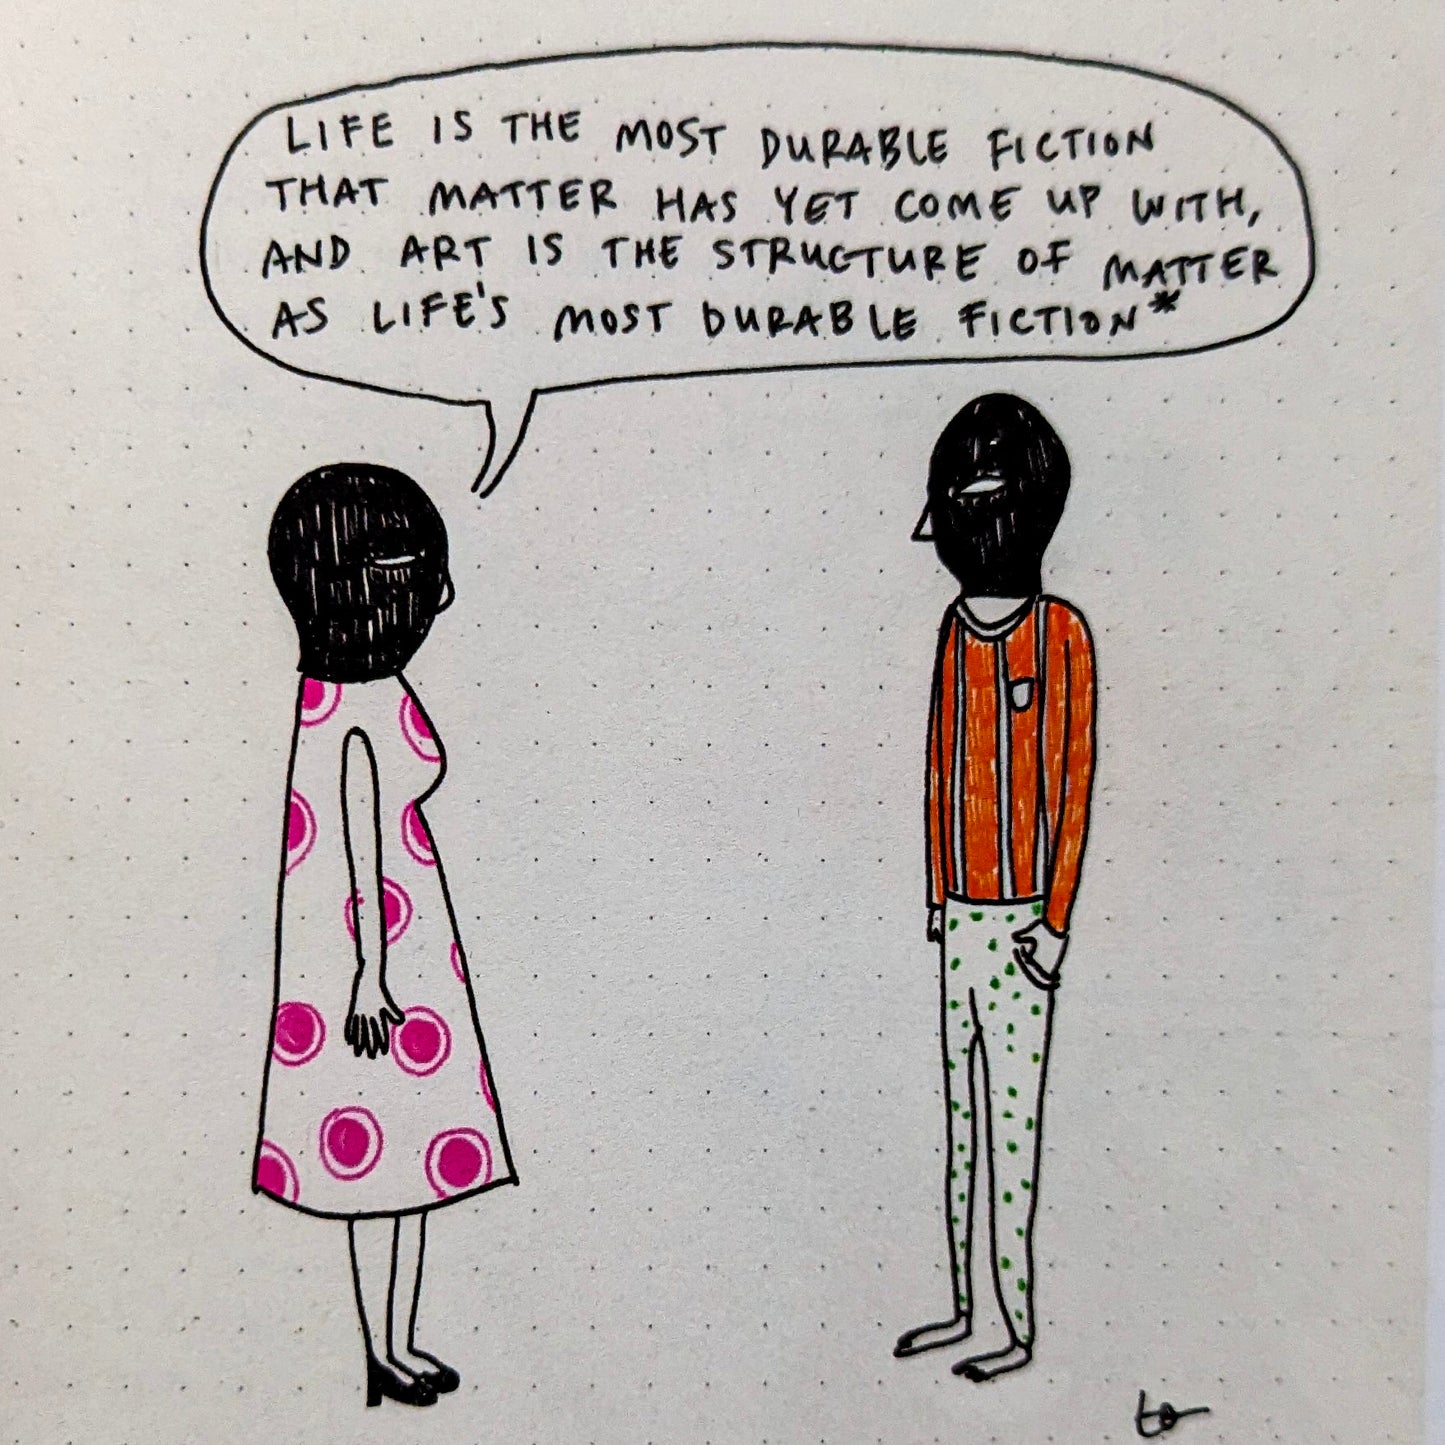 LIFE IS THE MOST DURABLE FICTION
THAT MATTER HAS YET COME UP WITH,
AND ART IS THE STRUCTURE OF MATTER
AS LIFE'S MOST DURABLE FICTION*